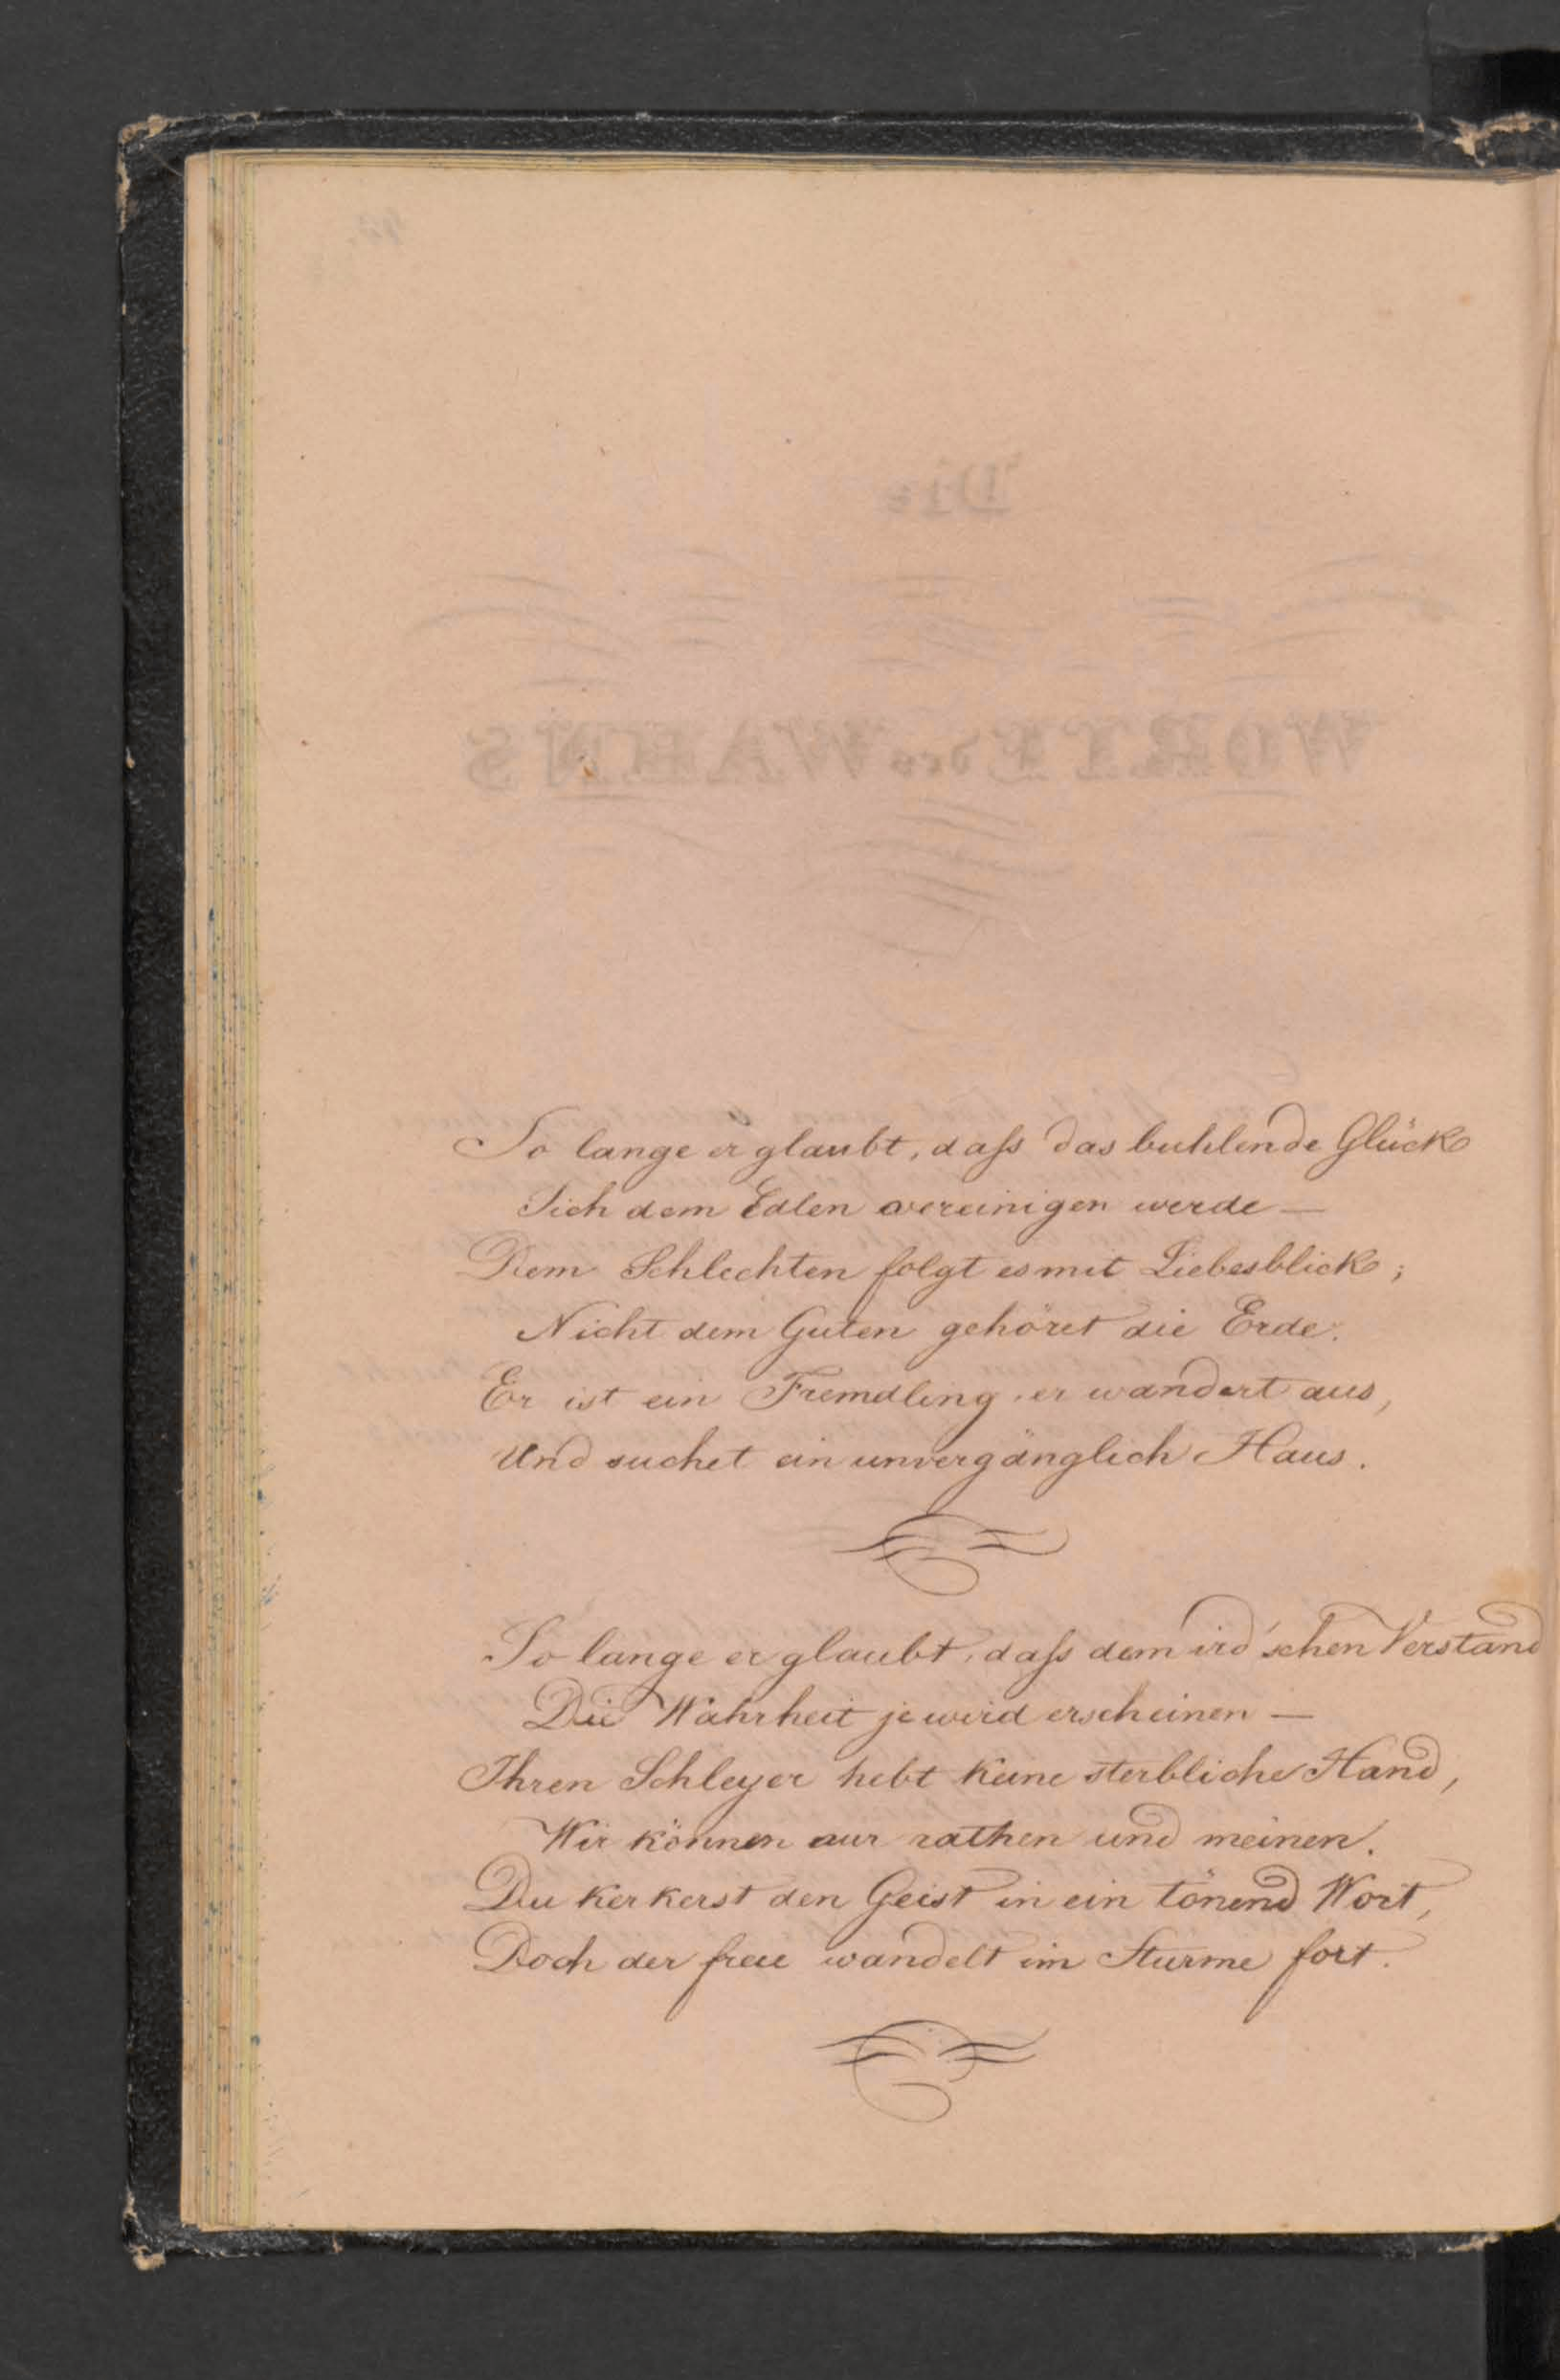 So lange er glaubt, daſs das buhlende Glück
Sich dem Edlen vereinigen werde —
Dem Schlechten folgt es mit Liebesblick;
Nicht dem Guten gehöret die Erde.
Er ist ein Fremdling, er wandert aus,
Und suchet ein unvergänglich Haus.
So lange er glaubt, daſs dem ird'schen Verstand
Die Wahrheit je wird erscheinen —
Ihren Schleyer hebt keine sterbliche Hand,
Wir können nur rathen und meinen.
Du kerkerst den Geist in ein tönend Wort,
Doch der freie wandelt im Sturme fort.